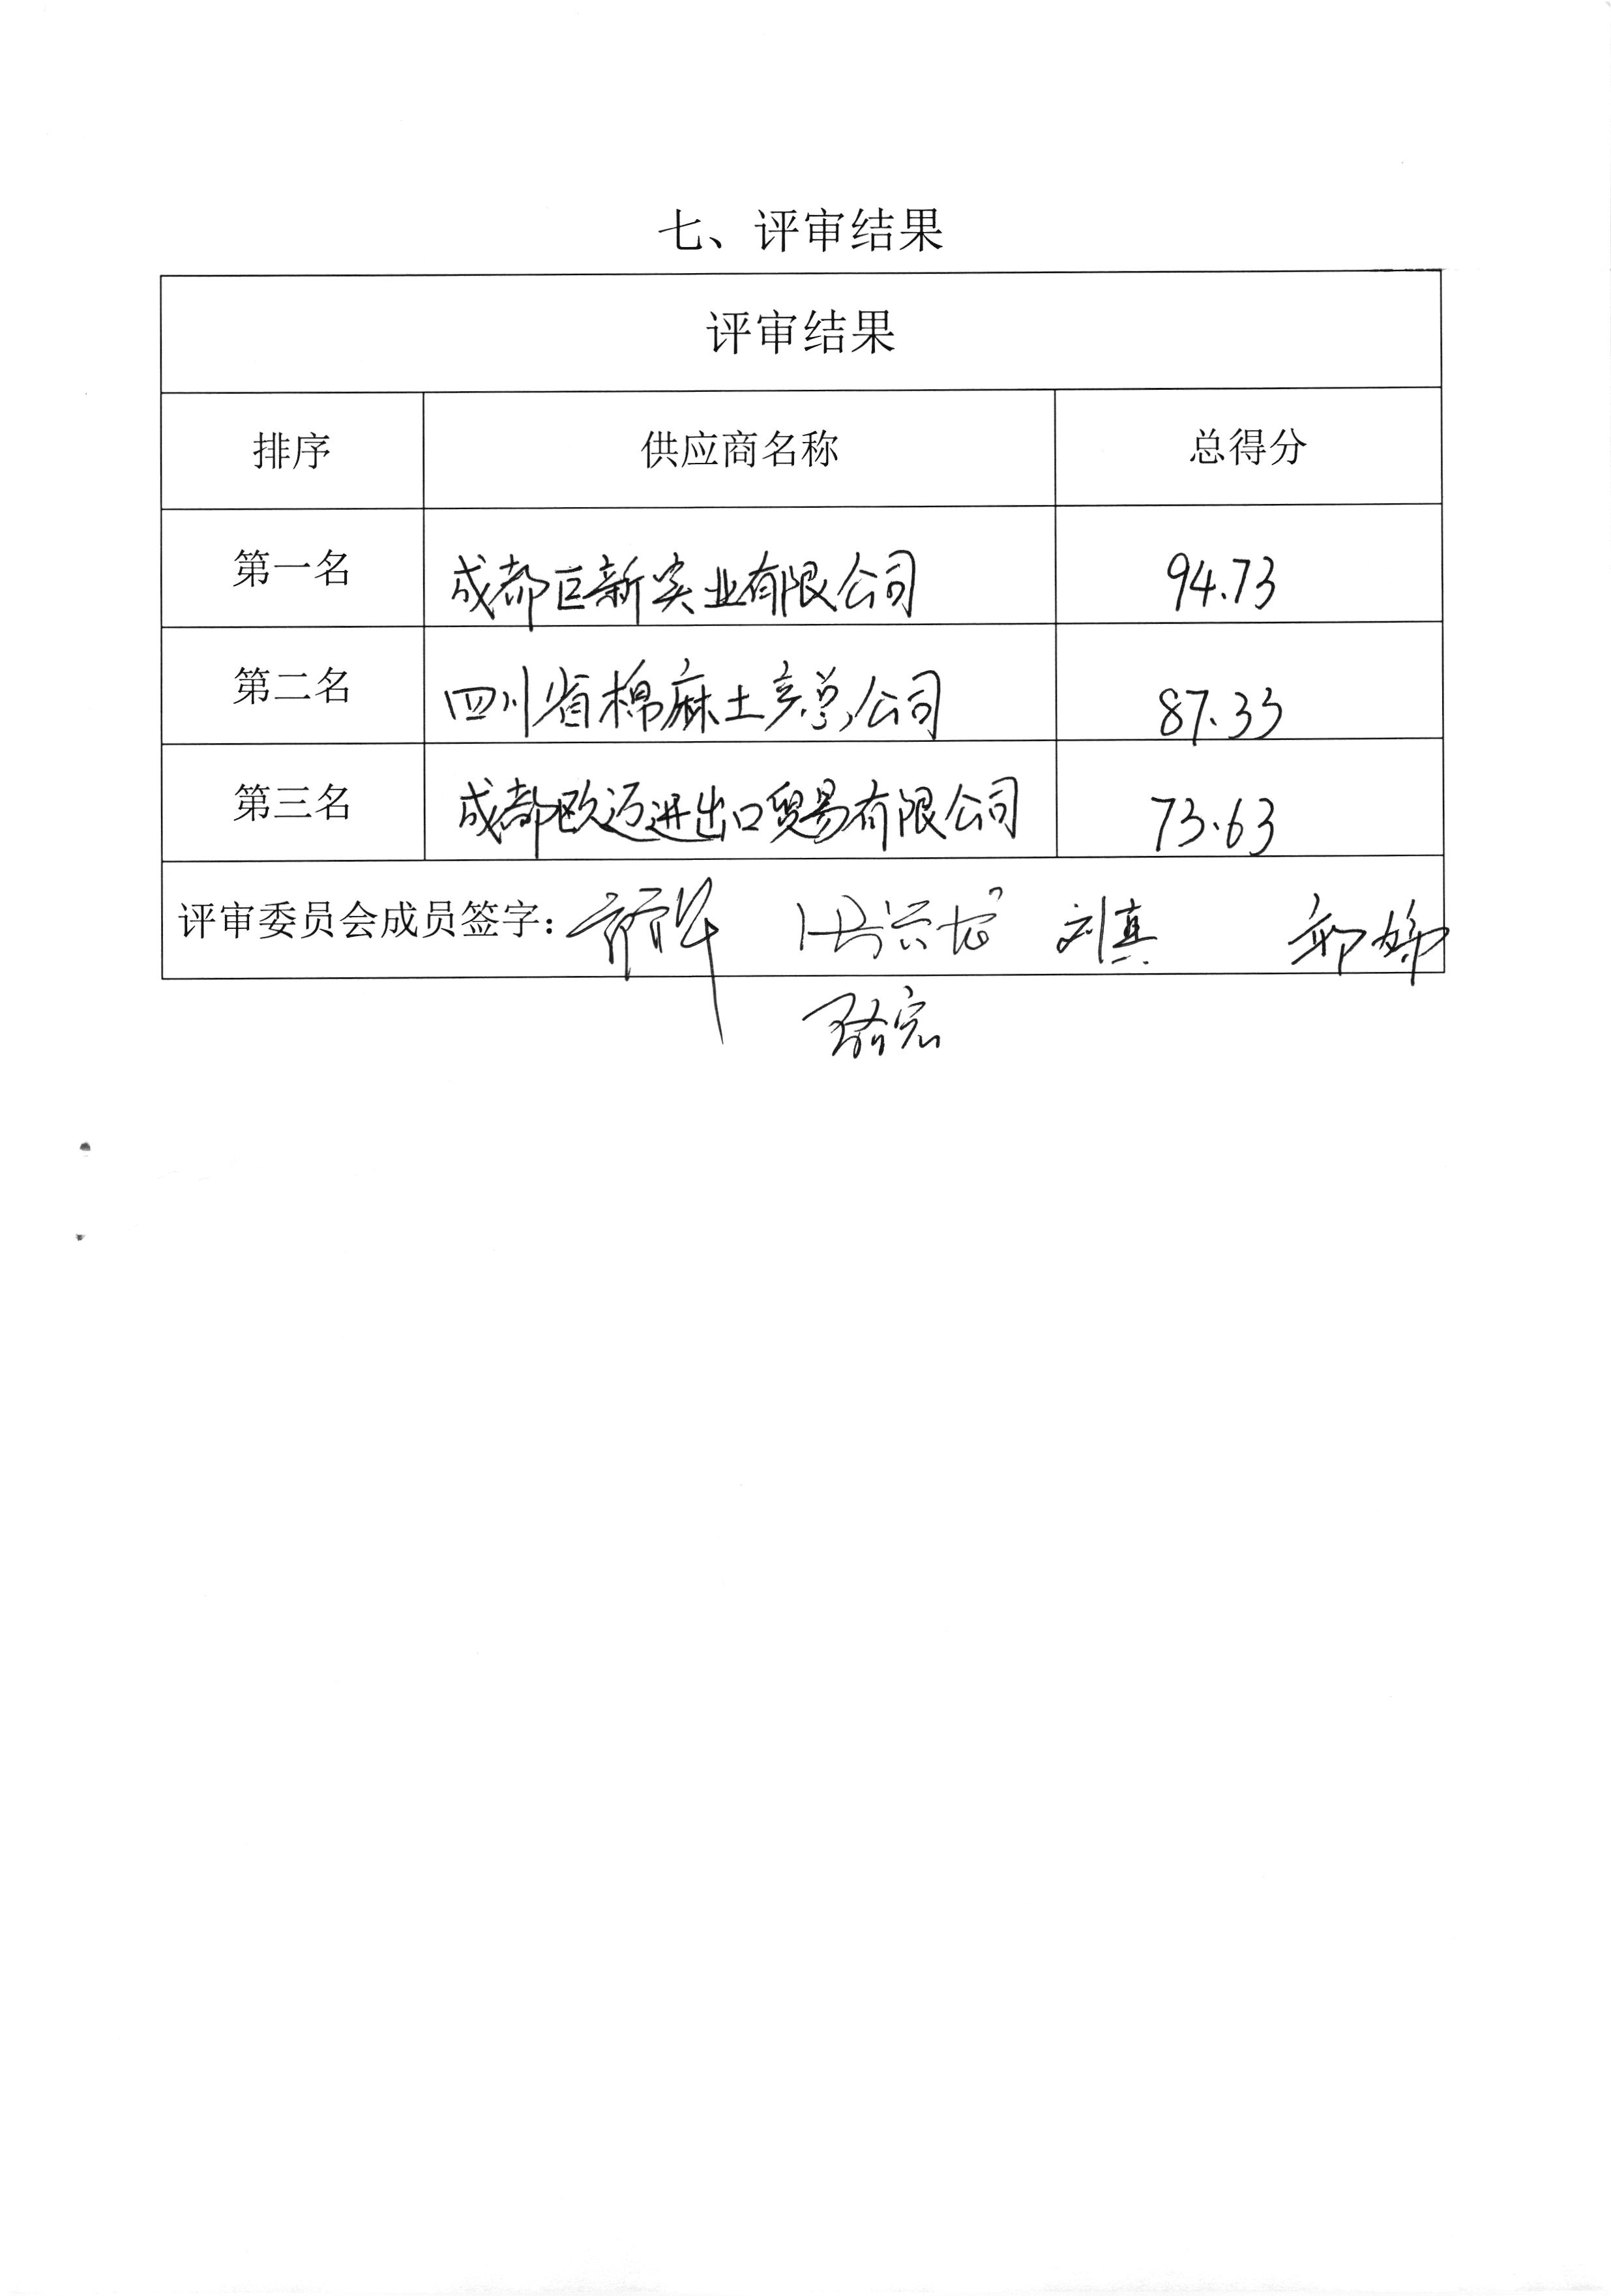 七、评审结果
评审结果
排序 供应商名称 总得分
第一名 成都巨新实业有限公司 94.73
第二名 四川省棉麻土产总公司 87.33
第三名 成都欧迈进出口贸易有限公司 73.63
评审委员会成员签字： 刘真